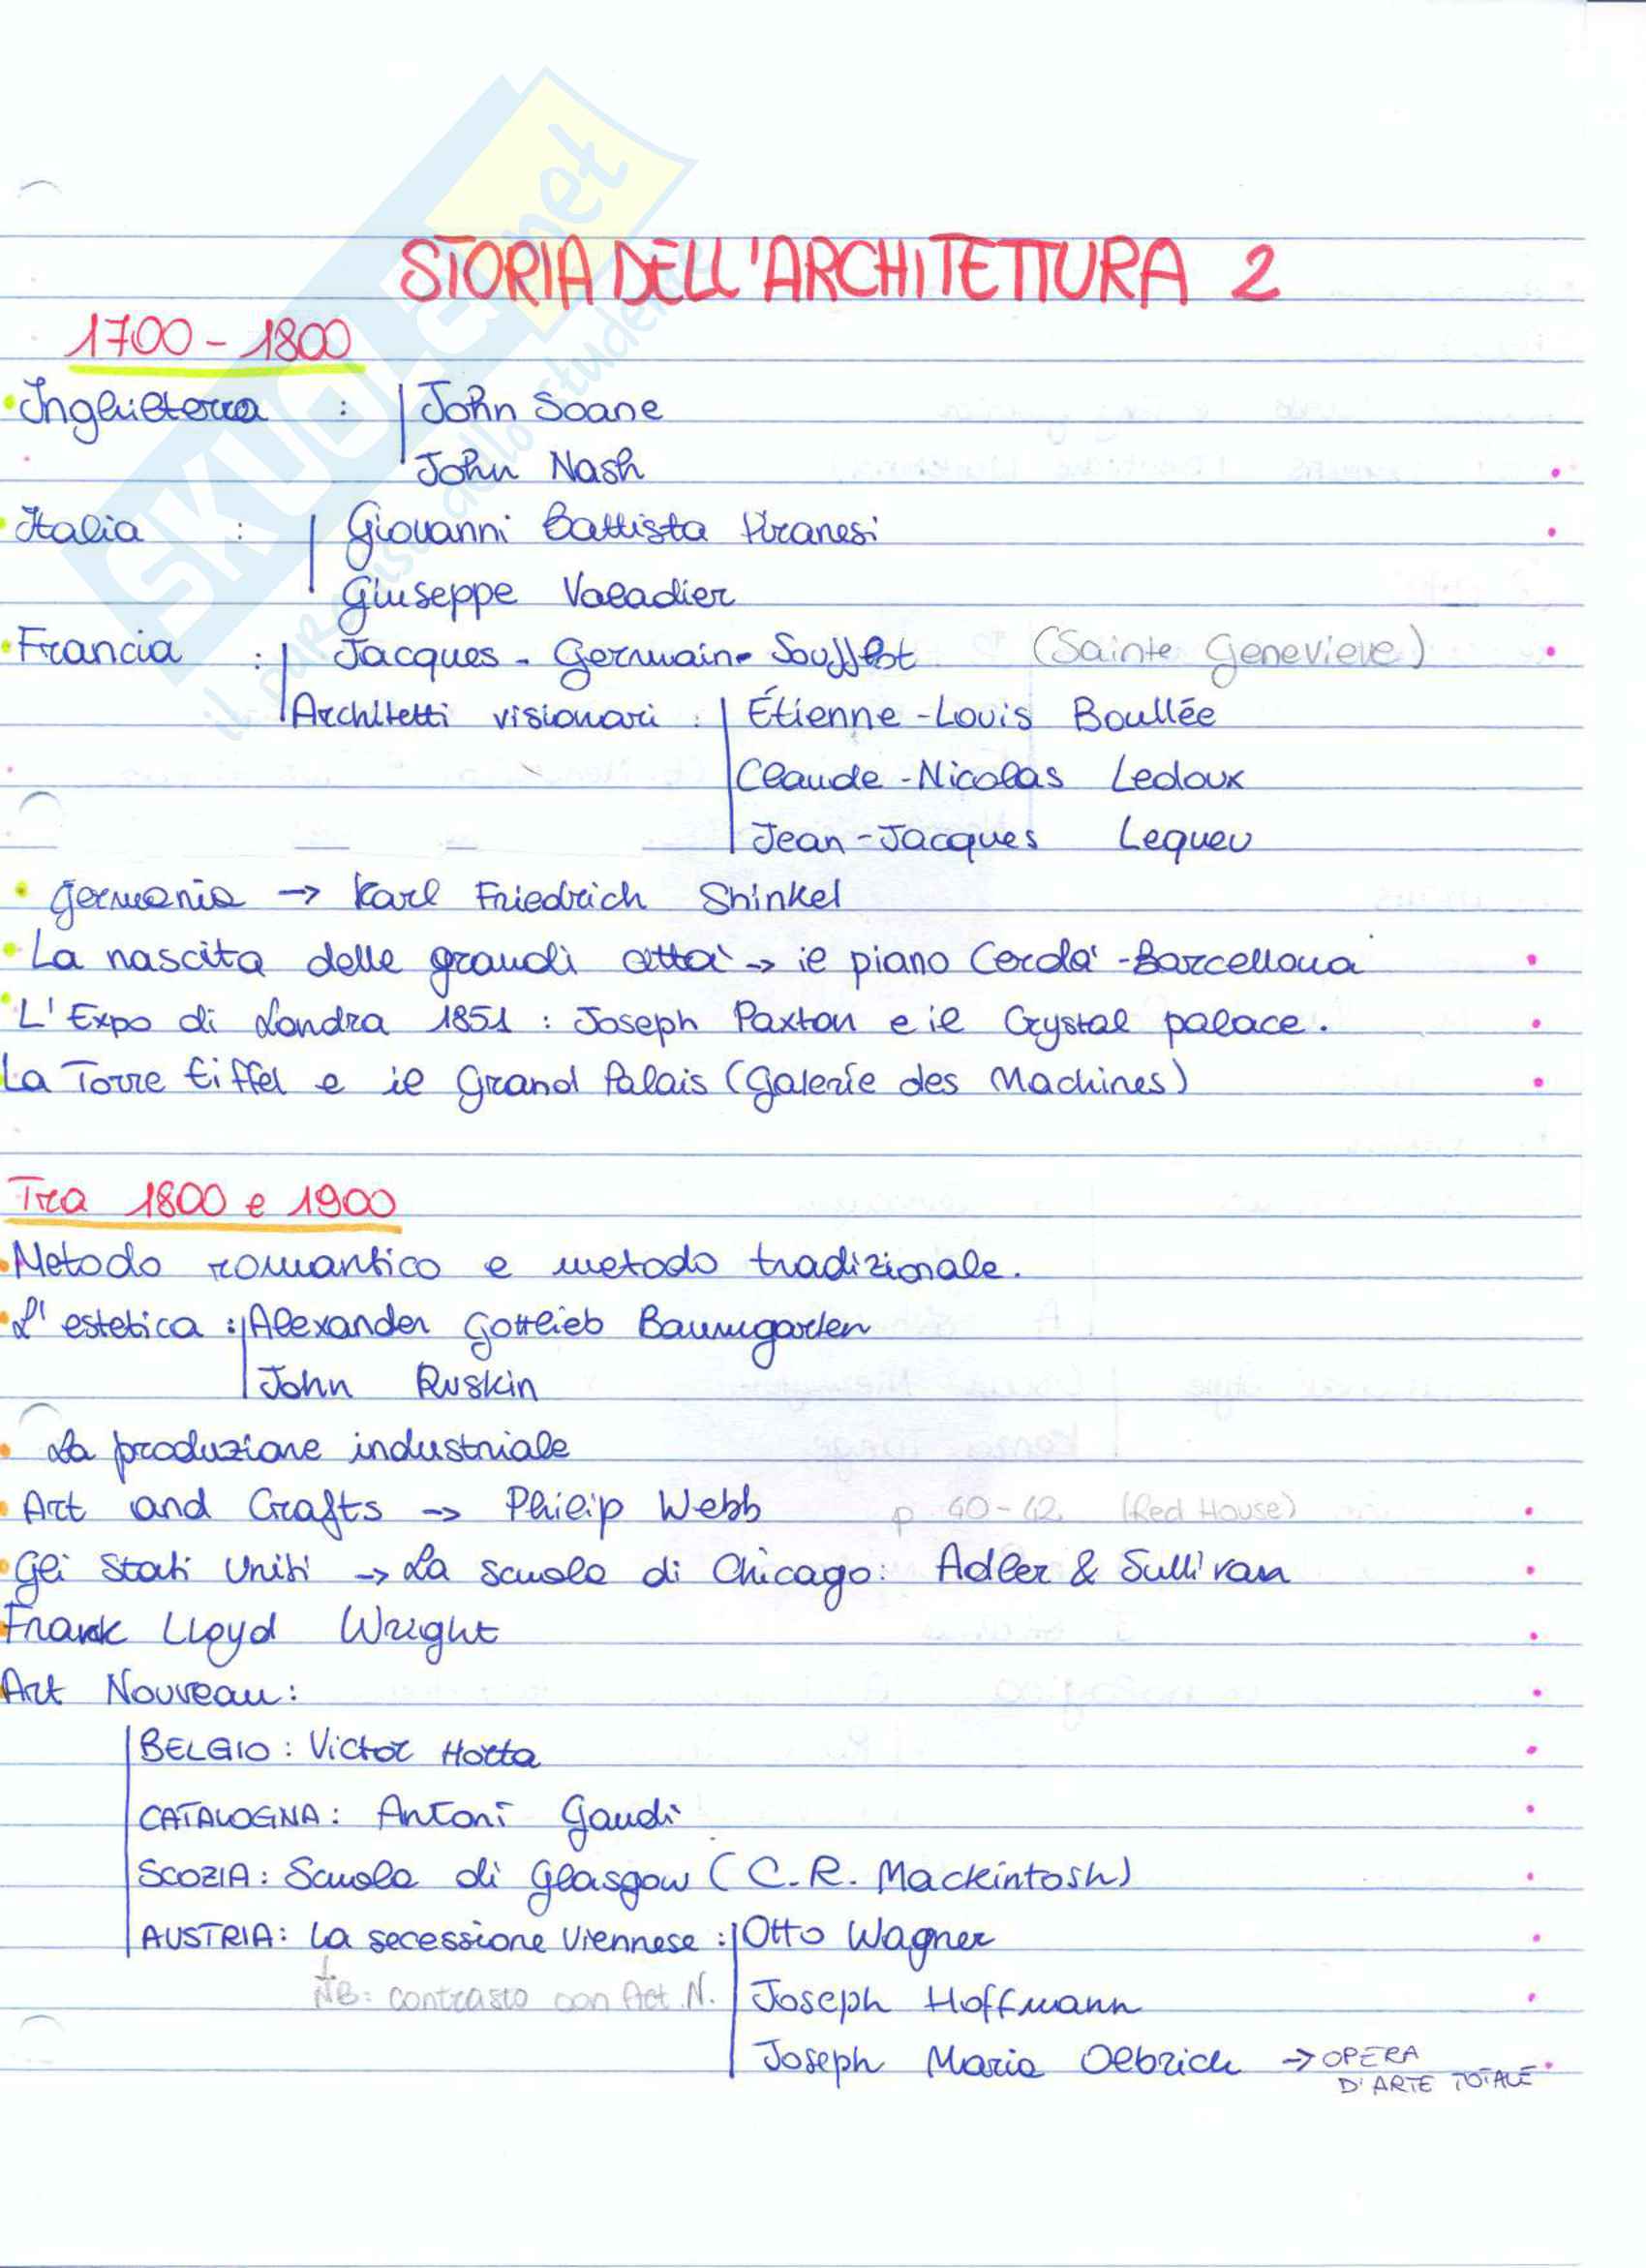 STORIA DELL'ARCHITETTURA 2
1700 - 1800
Inghilterra : John Soane
John Nash
Italia : Giovanni Battista Piranesi
Giuseppe Valadier
Francia : Jacques-Germain-Soufflot (Sainte Genevieve)
Architetti visionari : Étienne-Louis Boullée
Claude-Nicolas Ledoux
Jean-Jacques Lequeu
Germania → Karl Friedrich Shinkel
La nascita delle grandi città → il piano Cerdà - Barcellona
L'Expo di Londra 1851 : Joseph Paxton e il Crystal palace.
La Torre Eiffel e il Grand Palais (Galerie des Machines)
Tra 1800 e 1900
Metodo romantico e metodo tradizionale.
L'estetica : Alexander Gottlieb Baumgarten
John Ruskin
La produzione industriale
Art and Crafts → Philip Webb p 40-42 (Red House)
Gli Stati Uniti → La scuola di Chicago: Adler & Sullivan
Frank Lloyd Wright
Art Nouveau:
BELGIO : Victor Horta
CATALOGNA : Antoni Gaudì
SCOZIA : Scuola di Glasgow (C.R. Mackintosh)
AUSTRIA : La secessione viennese : Otto Wagner
NB: contrasto con Art N. Joseph Hoffmann
Joseph Maria Olbrich → OPERA
D'ARTE TOTALE
SKUOLA.net